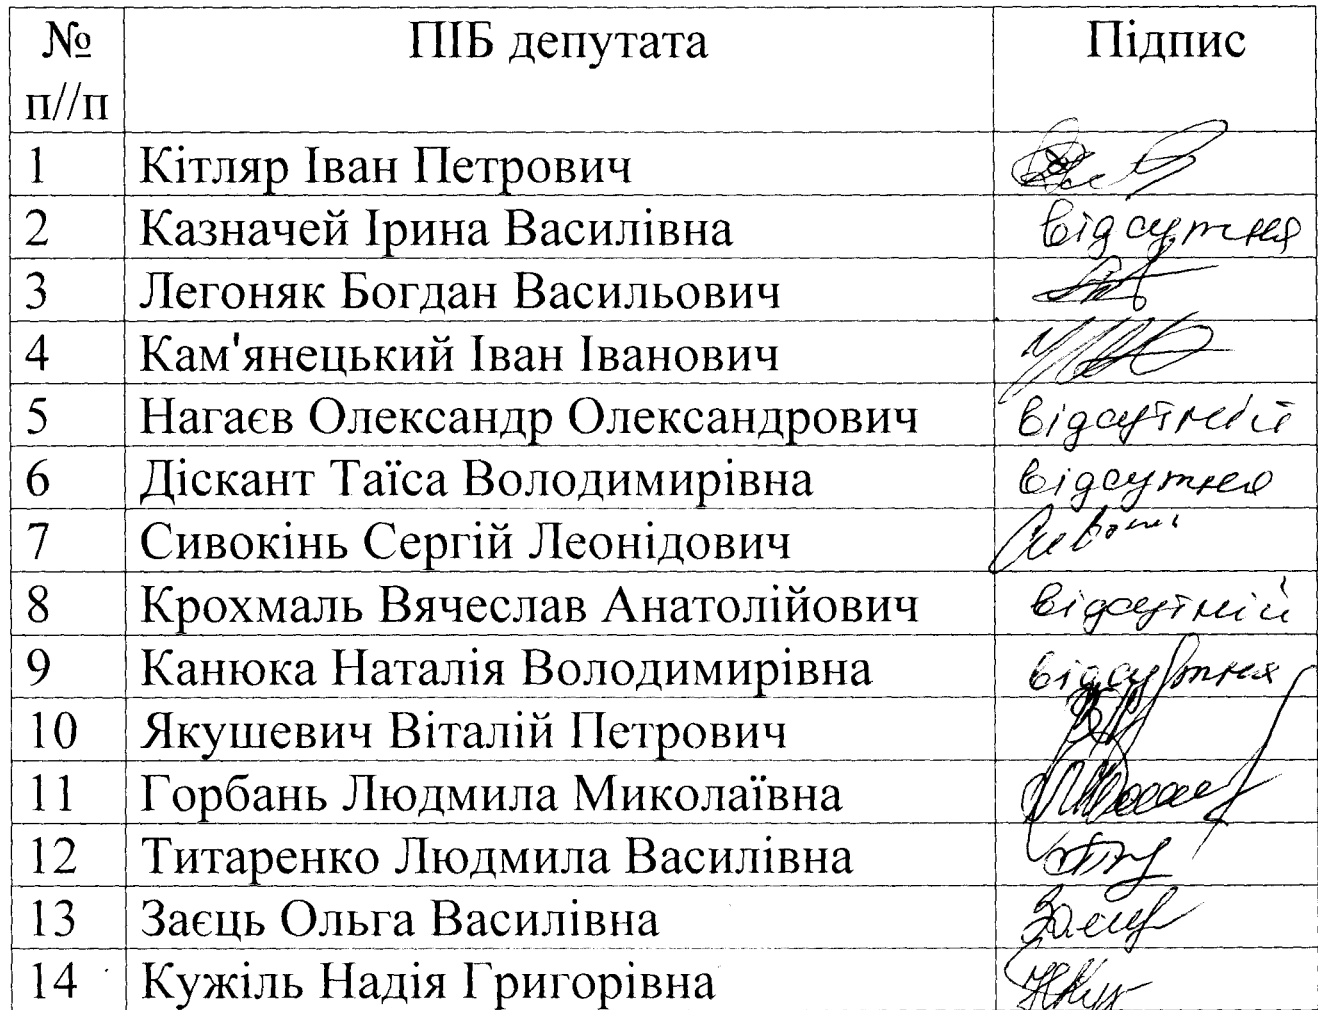 № ПІБ депутата Підпис
п//п
1 Кітляр Іван Петрович
2 Казначей Ірина Василівна відсутня
3 Легоняк Богдан Васильович
4 Кам'янецький Іван Іванович
5 Нагаєв Олександр Олександрович відсутній
6 Діскант Таїса Володимирівна відсутня
7 Сивокінь Сергій Леонідович
8 Крохмаль Вячеслав Анатолійович відсутній
9 Канюка Наталія Володимирівна відсутня
10 Якушевич Віталій Петрович
11 Горбань Людмила Миколаївна
12 Титаренко Людмила Василівна
13 Заєць Ольга Василівна
14 Кужіль Надія Григорівна